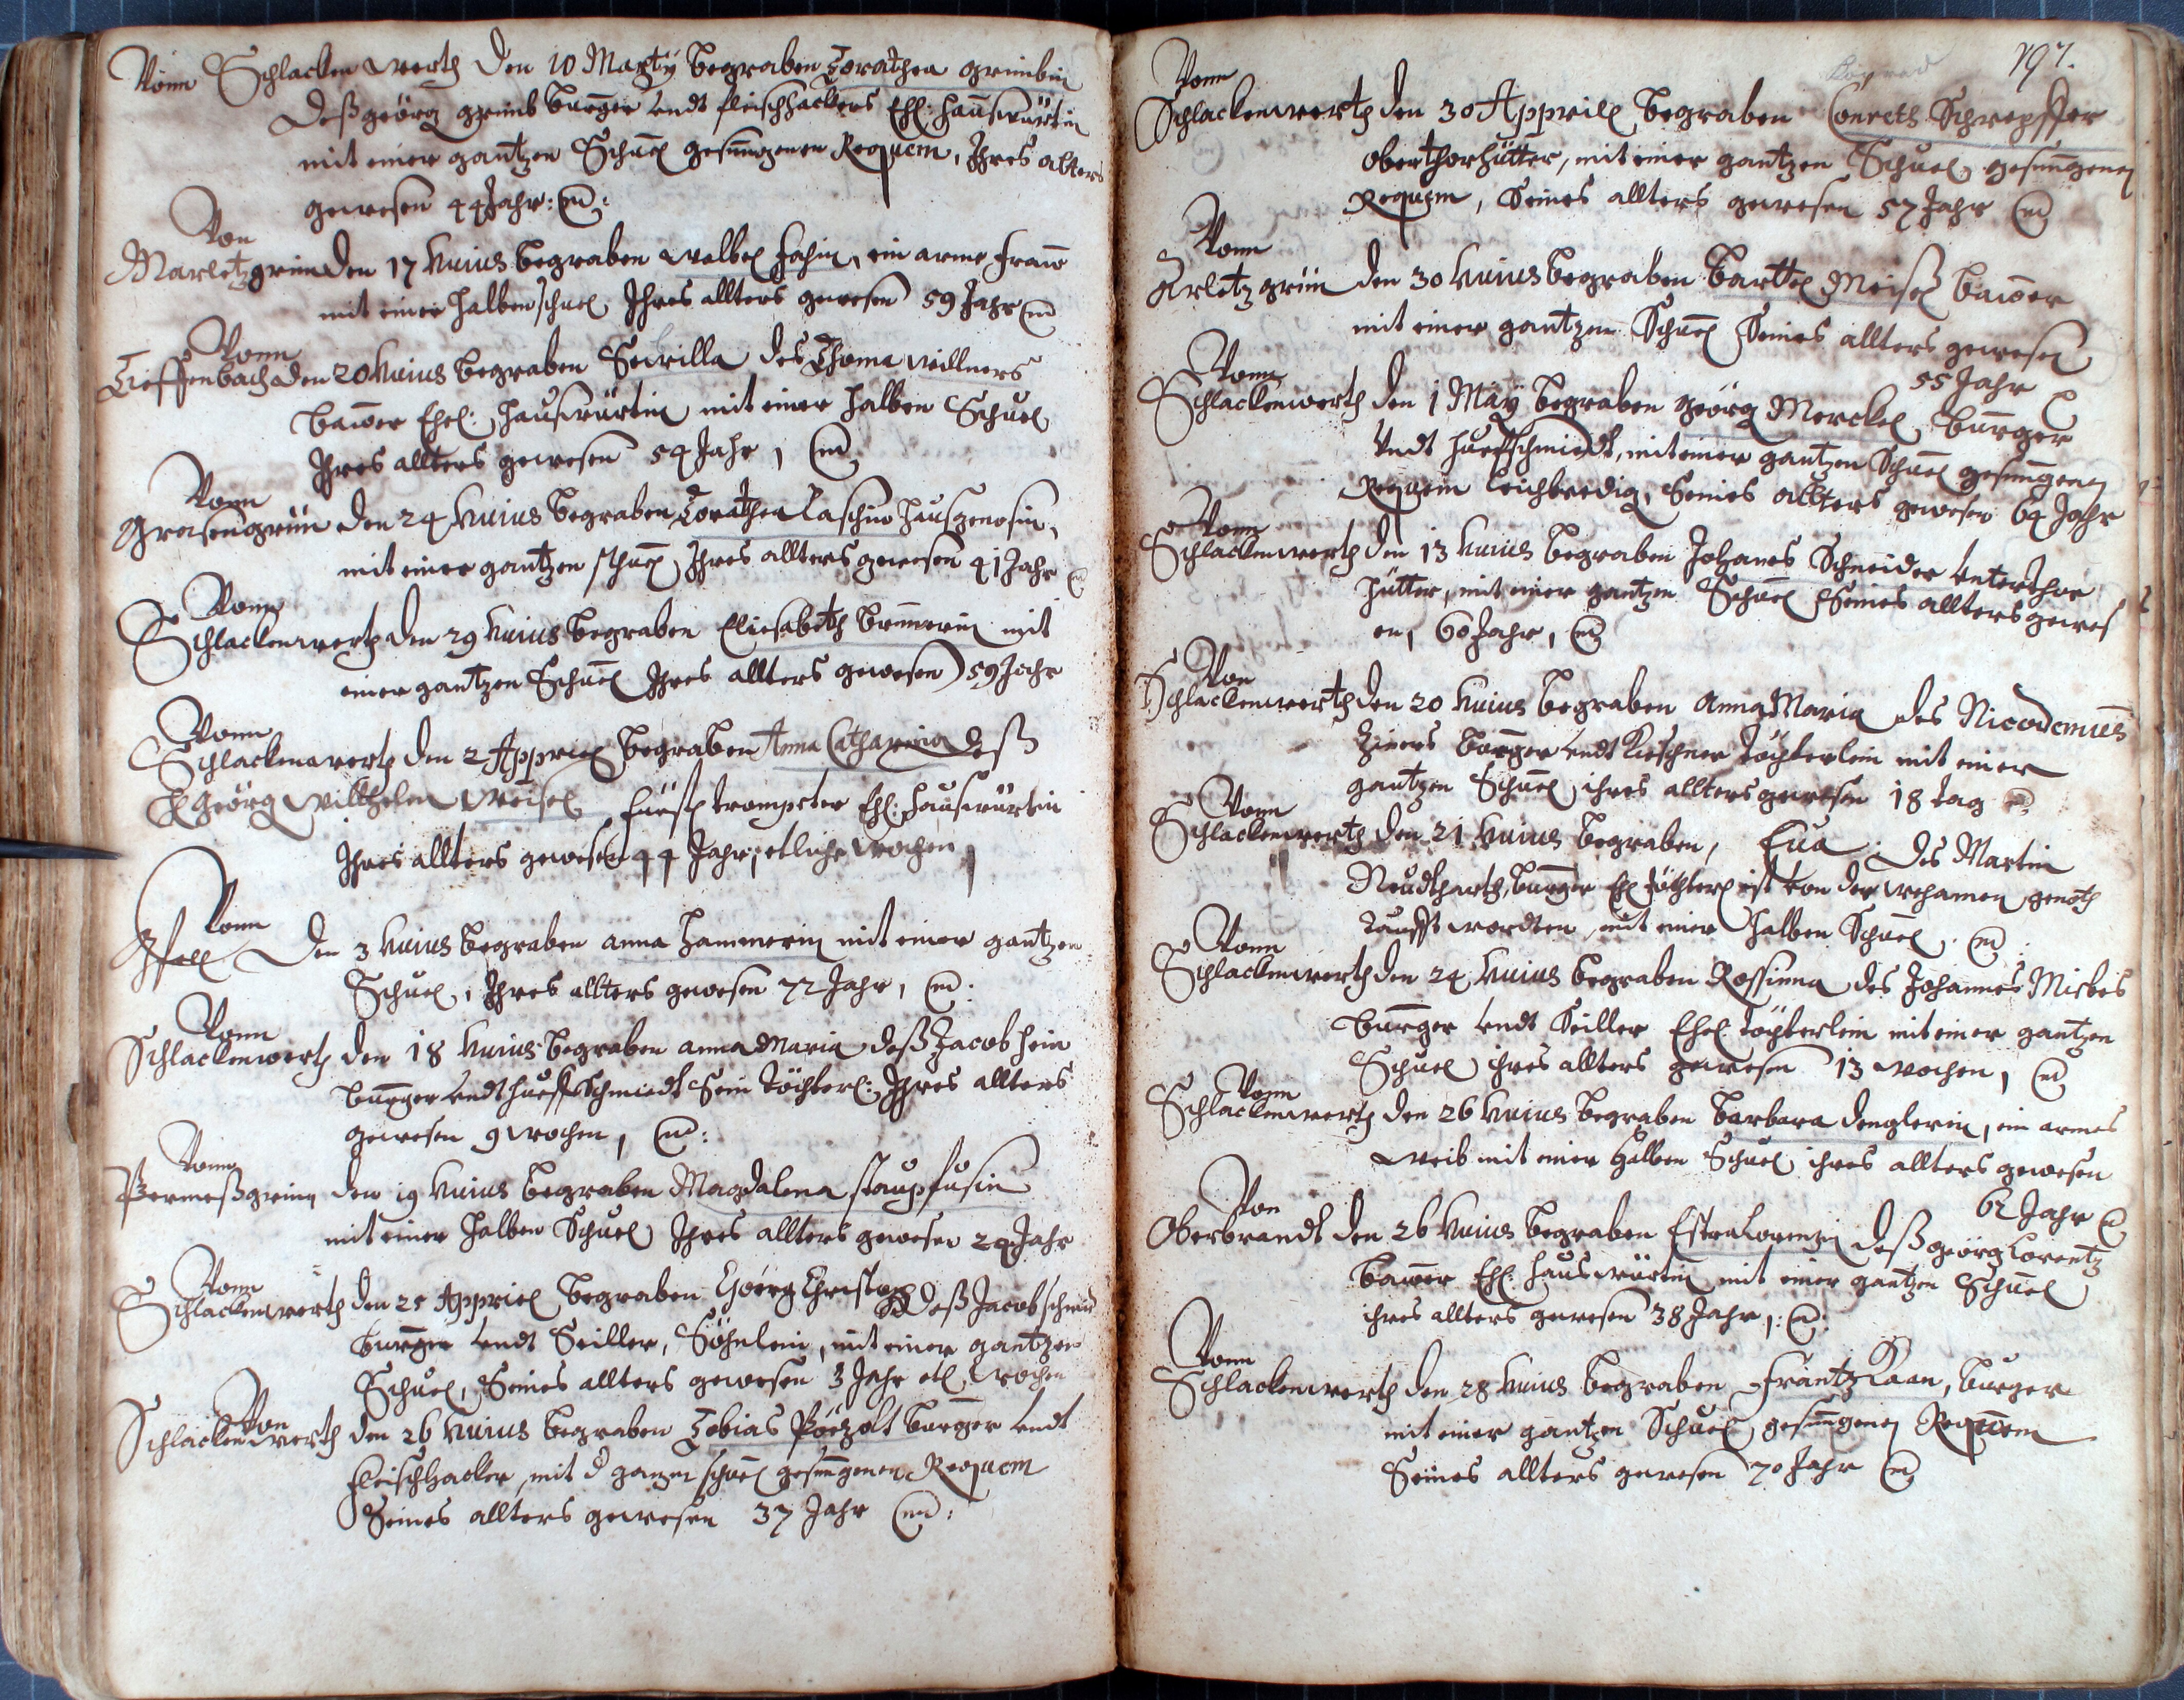 Vonn Schlackenwerth den 10 Martÿ begraben Dorathea grimbin
deß geörg grimb burger undt fleischhackers Ehl: haußwürtin
mit einer gantzen Schuel gesungenen Requem, Ihres alters
gewesen 44 Jahr:
Von
Marletzgrün den 17 huius begraben walbel hahin, ein arme fraw
mit einer halben schuel Ihres allters gewesen 59 Jahr
Vonn
Tieffenbach den 20 huius begraben Sewilla des Thoma willners
bawer Ehel: haußwürtin mit einer halben Schuel
Ihres allters gewesen 54 Jahr,
Vonn
Grasengrün den 24 huius begraben Dorathea Laschin haußgenosin,
mit einer gantzen schuel, Ihres allters gewesen 41 Jahr
Vonn
Schlackenwerth den 29 huius begraben Eliesabeth mit
einer gantzen Schuel Ihres allters gewesen 59 Jahr
Vonn
Schlackenwerth den 2 Appriel begraben Anna Catharina deß
H geörg willhelm Weisel fürstl trompeter Ehl: haußwürtin
Ihres allters gewesen 44 Jahr, etliche wochen
Vonn
Pfell den 3 huius begraben anna hammerin mit einer gantzen
Schuel, Ihres allters gewesen 72 Jahr,
Vonn
Schlackenwerth den 18 huius begraben anna Maria deß Jacob hein
burger undt hueffschmidt Sein döchterl: Ihres allters
gewesen 9 wochen,
Vonn
Permeßgrün den 19 huius begraben Magdalena staupfusin
mit einer halben Schuel Ihres allters gewesen 24 Jahr
Vonn
Schlackenwerth den 25 Appriel begraben Geörg Christoph deß Jacob
burger undt Seiller, Söhnlein, mit einer gantzen
Schuel, Seines allters gewesen 3 Jahr etl wochen
Von
Schlackenwerth den 26 huius begraben Tobias Pöezolt burger undt
fleischhacker, mit d gantzen schuel gesungenen Requem
Seines allters gewesen 37 Jahr
197.
Konrad
Vonn
Schlackenwerth den 30 Appriel begraben Conrets Schrepffer
oberthorhütter, mit einer gantzen Schuel gesungenen
Requem, Seines allters gewesen 57 Jahr
Vonn
Arletzgrün den 30 huius begraben Barttel Meisel bawer
mit einer gantzen Schuel Seines allters gewesen
55 Jahr
Vonn
Schlackenwerth den 1 Maÿ begraben geörg Merckel, burger
Undt hueffschmiedt, mit einer gantzen Schuel gesungenen
Requem leichbredig, Seines allters gewesen 64 Jahr
Vonn
Schlackenwerth den 13 huius begraben Johanes Schneider unterthor
hütter, mit einer gantzen Schuel Seines allters gewes
en, 60 Jahr,
Von
Schlackenwerth den 20 huius begraben anna Maria des Nicodemus
burger undt Kirschner döchterlein mit einer
gantzen Schuel ihres allters gewesen 18 tag
Vonn
Schlackenwerth den 21 huius begraben, Eua des Martin
Neudtharth, burger Ehl döchterl ist von der wehamen genoth
taufft wordten, mit einer halben Schuel.
Vonn
Schlackenwerth den 24 huius begraben Rossinna des Johannes Misbes
burger undt Seiller Ehel döchterlein mit einer gantzen
Schuel ihres allters gewesen 13 wochen,
Vonn
Schlackenwerth den 26 huius begraben Barbara denglerin, ein armes
weib mit einer halben Schuel ihres allters gewesen
62 Jahr
Von
Oberbrandt den 26 huius begraben Estra Lorenzin deß geörg Lorentz
bawer Ehl: haußwürtin mit einer gantzen Schuel
ihres allters gewesen 38 Jahr,:
Vonn
Schlackenwerth den 28 huius begraben frantz Kaan, burger
mit einer gantzen Schuel gesungenen Requem
Seines allters gewesen 70 Jahr